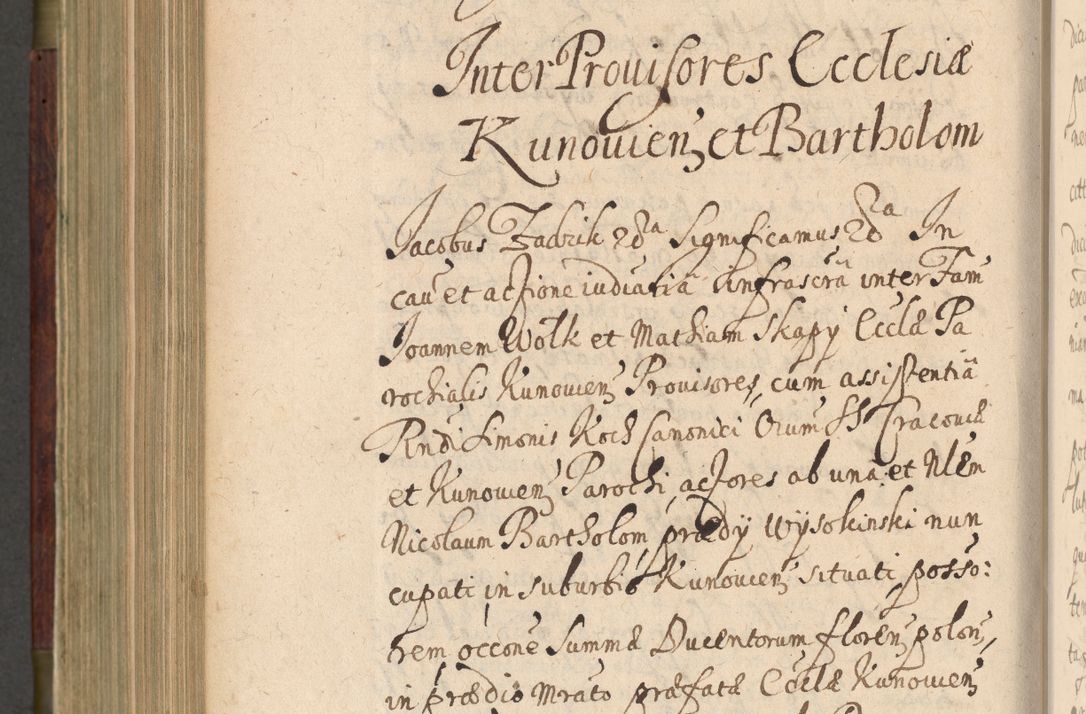 Inter Prouisores Ecclesiæ
Kunouien et Bartholom
Jacobus Zadzik &c Significamus &c In
cau et actione iudiatiã infrascrã inter Fam
Joannem Wolk et Mathiam Skapÿ Ecclæ Pa
rochialis Kunouien Prouisores, cum assistentiã
Rndi Simonis Koch Canonici Orum SS Cracouiæ
et Kunouien Parochi actores ab una et Nlem
Nicolaum Bartholom prædÿ Wÿsokinski nun
cupati in suburbio Kunouien situati posso:
rem occõne Summæ Ducentorum floren polon,
in prædio Mrato præfatæ Ecclæ Kunouien